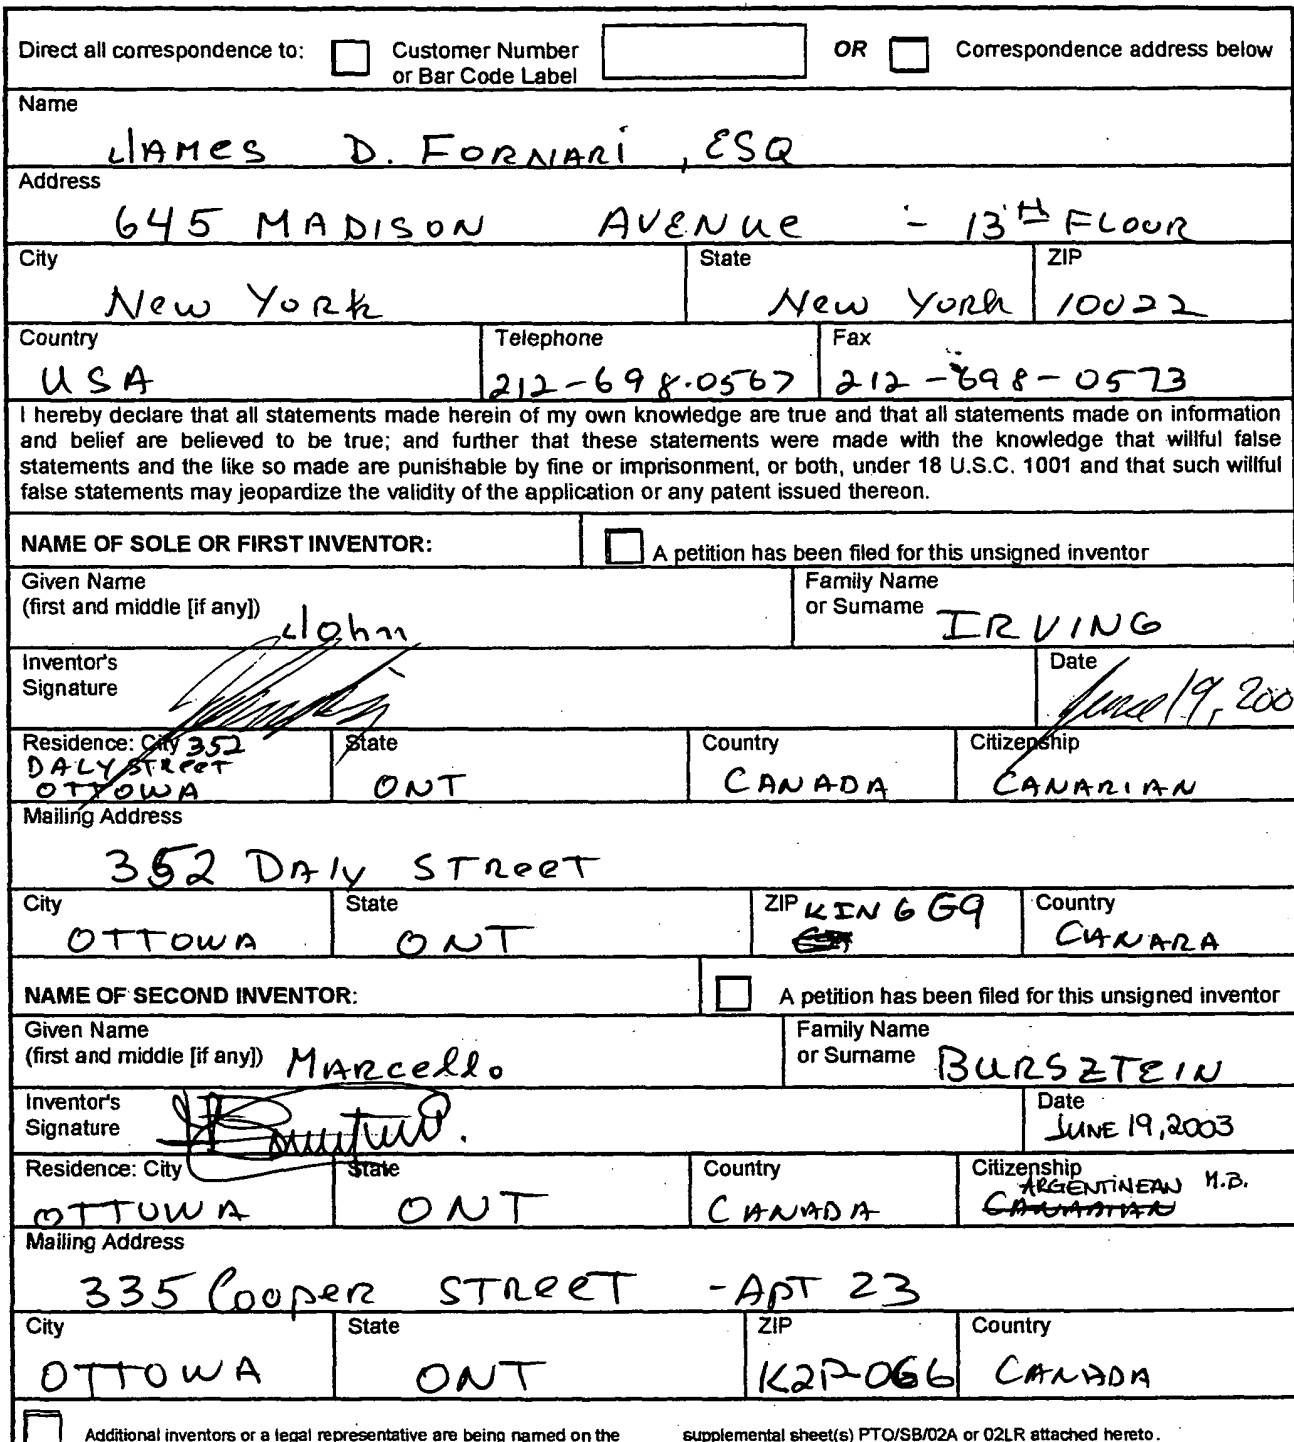 Direct all correspondence to: Customer Number or Bar Code Label OR Correspondence address below
Name
JAMES D. FORNARI, ESQ
Address
645 MADISON AVENUE - 13TH FLOOR
City State ZIP
New York New York 10022
Country Telephone Fax
USA 212-698-0567 212-698-0573
I hereby declare that all statements made herein of my own knowledge are true and that all statements made on information
and belief are believed to be true; and further that these statements were made with the knowledge that willful false
statements and the like so made are punishable by fine or imprisonment, or both, under 18 U.S.C. 1001 and that such willful
false statements may jeopardize the validity of the application or any patent issued thereon.
NAME OF SOLE OR FIRST INVENTOR: A petition has been filed for this unsigned inventor
Given Name Family Name
(first and middle [if any]) John or Surname IRVING
Inventor's Date
Signature June 19, 200
Residence: City 352 State Country Citizenship
DALY STREET
OTTOWA ONT CANADA CANADIAN
Mailing Address
352 DAly STReeT
City State ZIP KIN 6G9 Country
OTTOWA ONT CANADA
NAME OF SECOND INVENTOR: A petition has been filed for this unsigned inventor
Given Name Family Name
(first and middle [if any]) MARcello or Surname BURSZTEIN
Inventor's Date
Signature JUNE 19, 2003
Residence: City State Country Citizenship
ARGENTINEAN M.B.
OTTOWA ONT CANADA
Mailing Address
335 Cooper STReeT - APT 23
City State ZIP Country
OTTOWA ONT K2P-0G6 CANADA
Additional inventors or a legal representative are being named on the supplemental sheet(s) PTO/SB/02A or 02LR attached hereto.